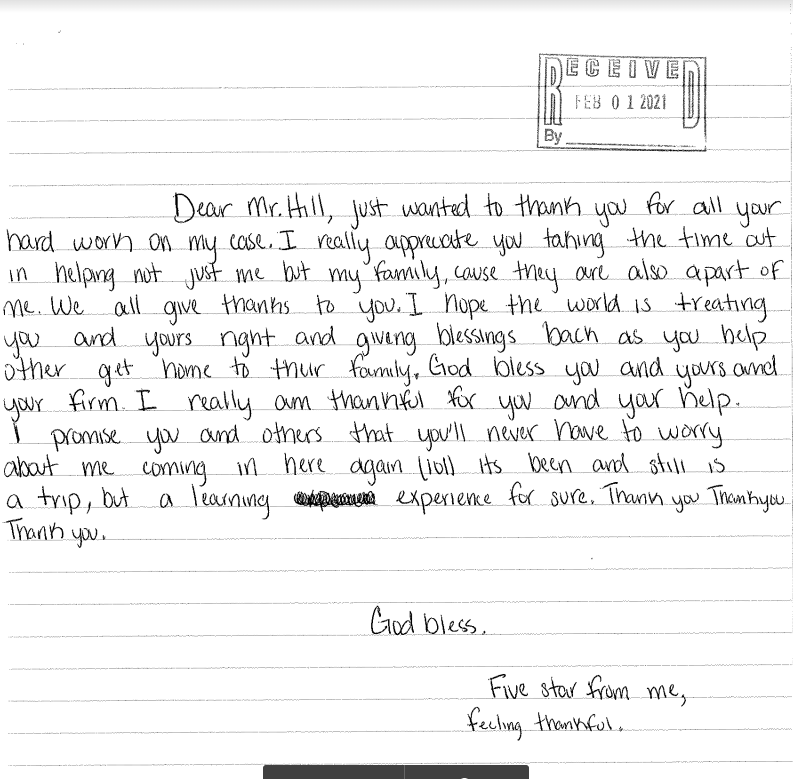 RECEIVED
FEB 01 2021
By
Dear Mr. Hill, just wanted to thank you for all your
hard work on my case. I really appreciate you taking the time out
in helping not just me but my family, cause they are also apart of
me. We all give thanks to you. I hope the world is treating
you and yours right and giving blessings back as you help
other get home to their family. God bless you and yours and
your firm. I really am thankful for you and your help.
I promise you and others that you'll never have to worry
about me coming in here again (lol) its been and still is
a trip, but a learning experience for sure. Thank you Thankyou
Thank you.
God bless.
Five star from me,
feeling thankful.